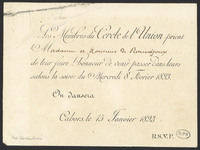 Les Membres du Cercle de l'Union prient
Madame et Monsieur de
de leur faire l'honneur de venir passer dans leurs
salons la soirée du Mercredi 8 Février 1893.
On dansera
Cahors, le 15 Janvier 1893
R.S.V.P.